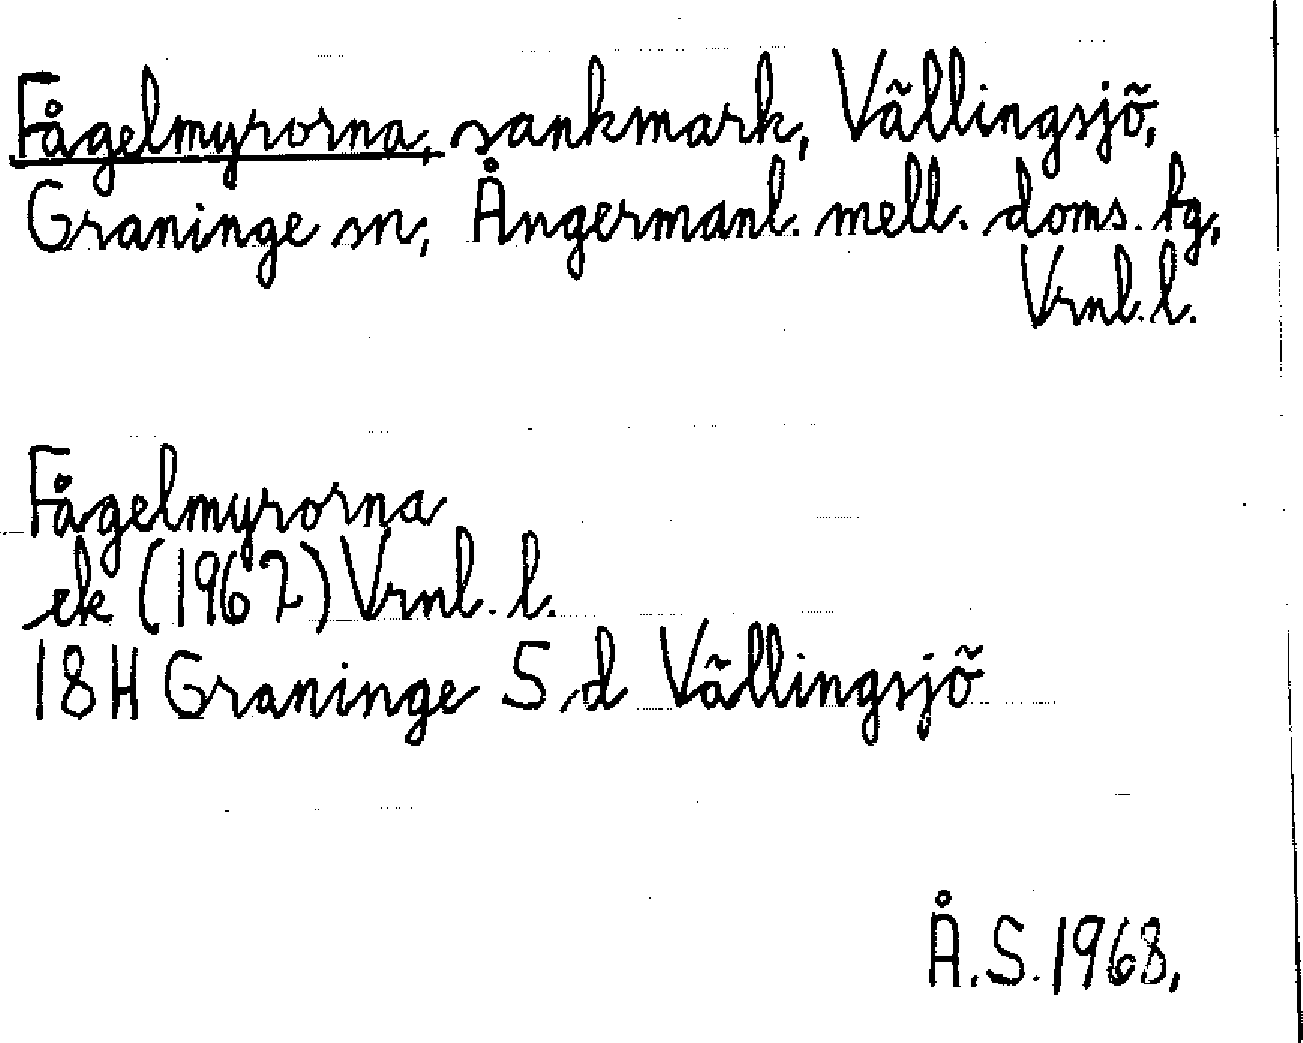 Fågelmyrorna, sankmark, Vällingsjö,
Graninge sn, Ångermanl. mell. doms. tg,
Vrnl. l.
Fågelmyrorna
ek (1967) Vrnl. l.
18H Graninge 5 d Vällingsjö
Å.S. 1968.